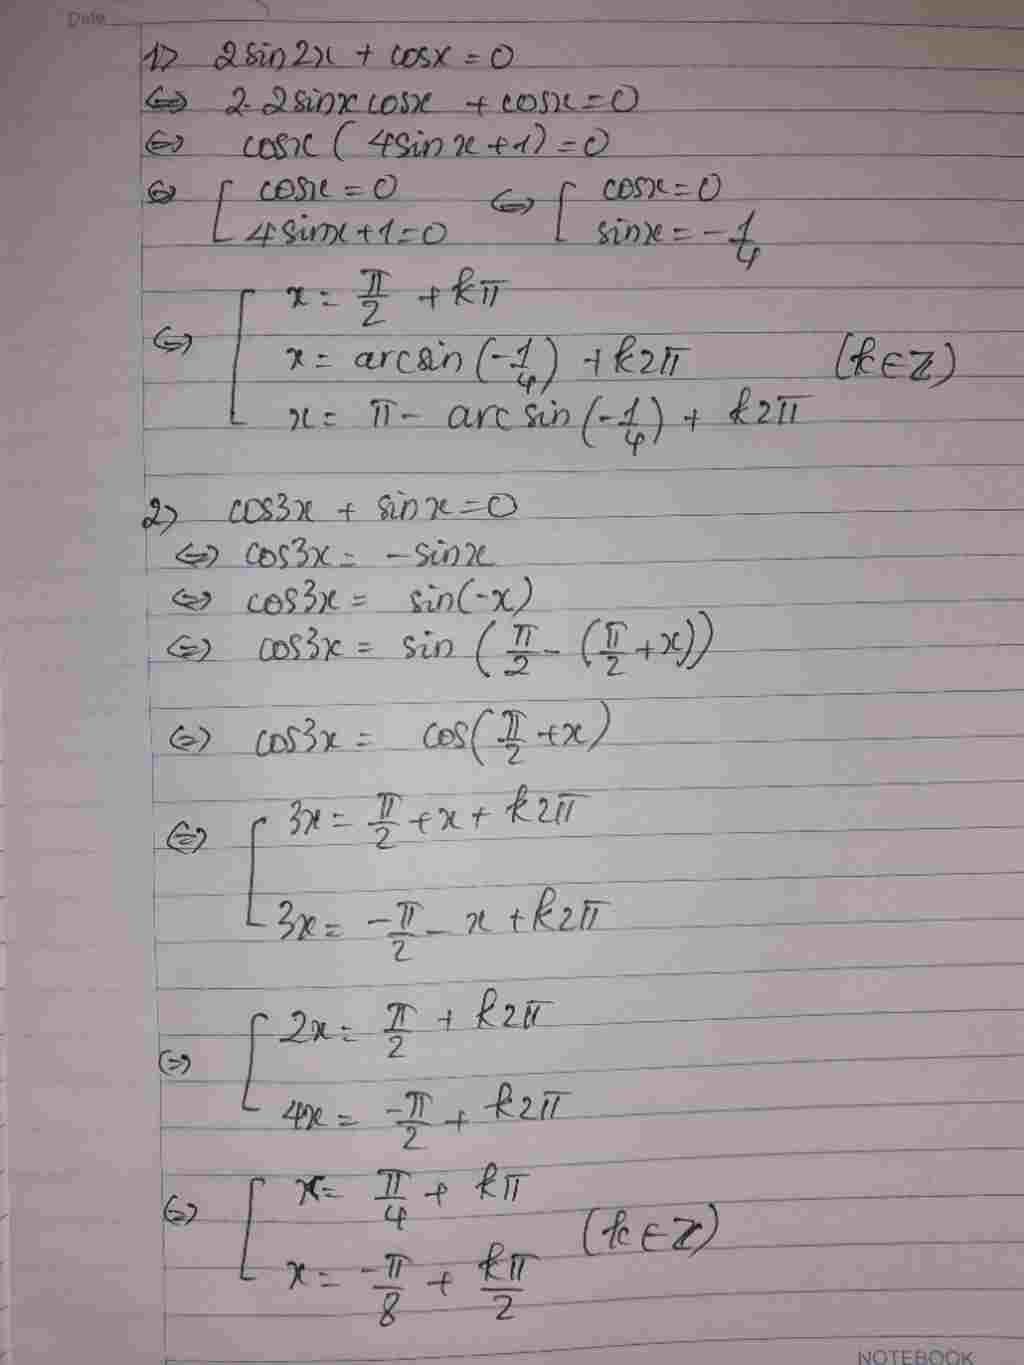 Date
1> 2sin2x + cosx = 0
⇔ 2.2sinx cosx + cosx = 0
⇔ cosx ( 4sinx + 1) = 0
⇔ [ cosx = 0 ⇔ [ cosx = 0
4sinx + 1 = 0 sinx = -1/4
⇔ [ x = π/2 + kπ
x = arcsin (-1/4) + k2π (k∈Z)
x = π - arcsin (-1/4) + k2π
2> cos3x + sinx = 0
⇔ cos3x = -sinx
⇔ cos3x = sin(-x)
⇔ cos3x = sin (π/2 - (π/2 + x))
⇔ cos3x = cos(π/2 + x)
⇔ [ 3x = π/2 + x + k2π
3x = -π/2 - x + k2π
⇔ [ 2x = π/2 + k2π
4x = -π/2 + k2π
⇔ [ x = π/4 + kπ
(k∈Z)
x = -π/8 + kπ/2
NOTEBOOK